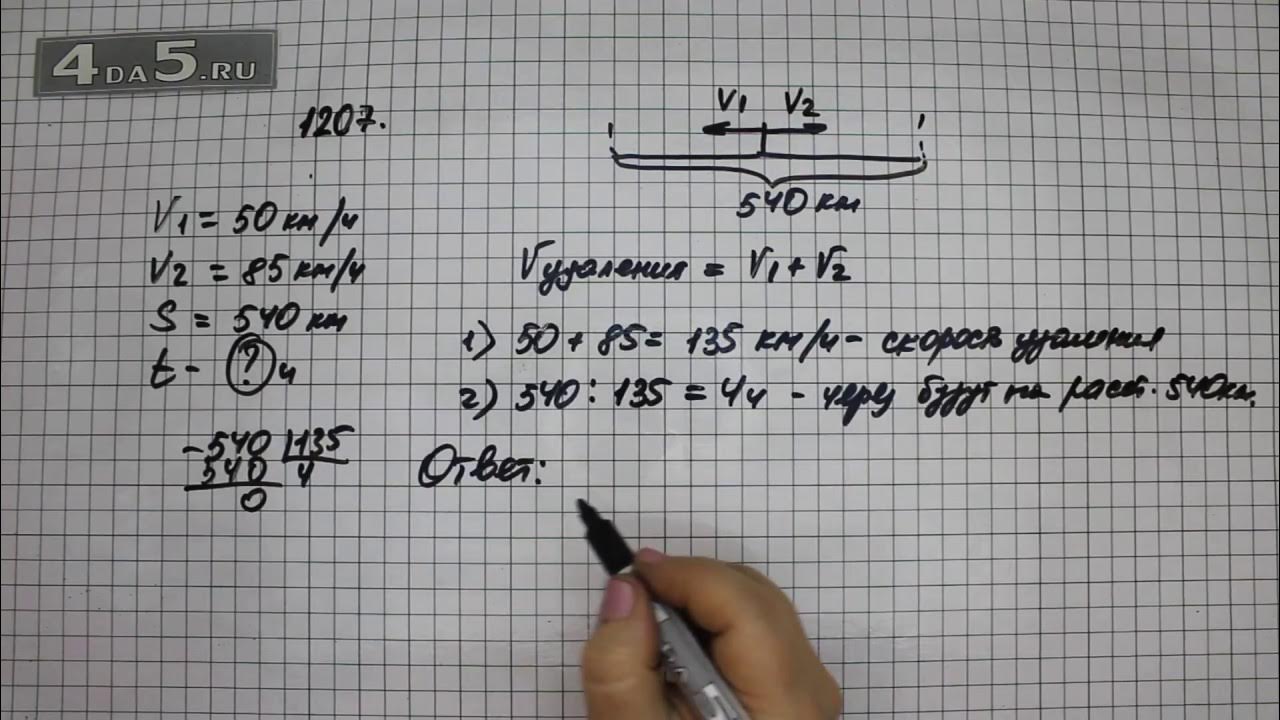 4DA5.RU
1207.
V1 V2
540 км
V1 = 50 км/ч
V2 = 85 км/ч
S = 540 км
t - ? ч
Vудаления = V1 + V2
1) 50 + 85 = 135 км/ч - скорость удаления
2) 540 : 135 = 4 ч - через будут на расст. 540 км.
- 540 | 135
540 4
0
Ответ: